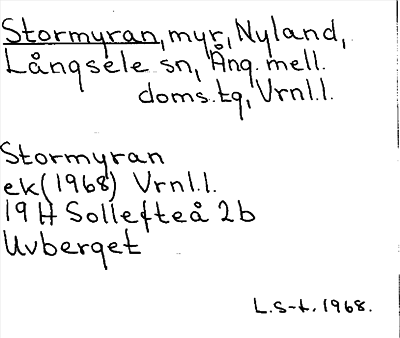 Stormyran, myr, Nyland,
Långsele sn, Ång. mell.
doms.tg, Vrnl.l.
Stormyran
ek (1968) Vrnl.l.
19 H Sollefteå 2b
Uvberget
L.S-t. 1968.